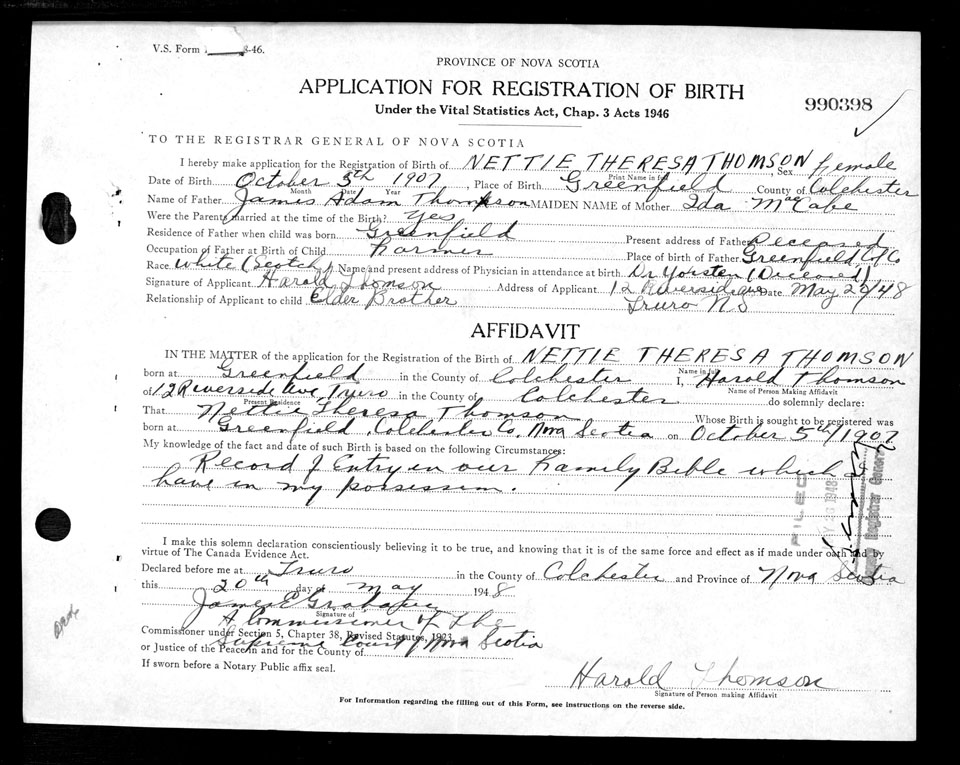 V.S. Form 8-46.
PROVINCE OF NOVA SCOTIA
APPLICATION FOR REGISTRATION OF BIRTH
990398
Under the Vital Statistics Act, Chap. 3 Acts 1946
TO THE REGISTRAR GENERAL OF NOVA SCOTIA
I hereby make application for the Registration of Birth of NETTIE THERESA THOMSON Sex female
Print Name in full
Date of Birth October 5th 1907, Place of Birth Greenfield County of Colchester
Month Date Year
Name of Father James Adam Thomson MAIDEN NAME of Mother Ida MacCabe
Were the Parents married at the time of the Birth? Yes
Residence of Father when child was born Greenfield Present address of Father Deceased
Occupation of Father at Birth of Child Farmer Place of birth of Father Greenfield Col Co
Race White (Scotch) Name and present address of Physician in attendance at birth Dr Yorsten (Deceased)
Signature of Applicant Harold Thomson Address of Applicant 12 Riverside Ave Date May 20/48
Relationship of Applicant to child Elder Brother Truro N.S
AFFIDAVIT
IN THE MATTER of the application for the Registration of the Birth of NETTIE THERESA THOMSON
Name in full
born at Greenfield in the County of Colchester I, Harold Thomson
Name of Person Making Affidavit
of 12 Riverside Ave, Truro in the County of Colchester do solemnly declare:
Present Residence
That Nettie Theresa Thomson Whose Birth is sought to be registered was
born at Greenfield, Colchester Co, Nova Scotia on October 5th/1907
My knowledge of the fact and date of such Birth is based on the following Circumstances:
Record of Entry in our Family Bible which I
have in my possession.
FILED
1948
Registrar General
I make this solemn declaration conscientiously believing it to be true, and knowing that it is of the same force and effect as if made under oath and by
virtue of The Canada Evidence Act.
Declared before me at Truro in the County of Colchester and Province of Nova Scotia
this 20th day of May 1948
James E Grahame
Signature of
A Commissioner of The
Commissioner under Section 5, Chapter 38, Revised Statutes, 1923
Supreme Court of Nova Scotia
or Justice of the Peace in and for the County of
If sworn before a Notary Public affix seal.
Harold Thomson
Signature of Person making Affidavit
For Information regarding the filling out of this Form, see instructions on the reverse side.